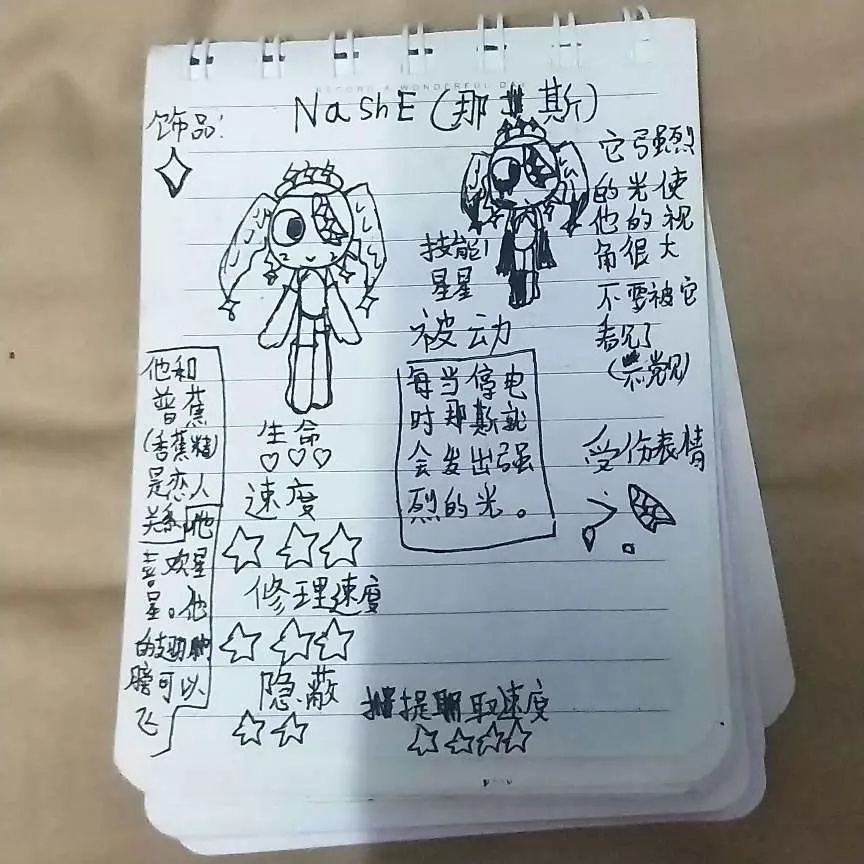 RECORD A WONDERFUL DAY
NashE(那斯)
饰品:
它强烈
的光使
他的视
角很大
不要被它
看见了
技能1
星星
被动
每当停电
时那斯就
会发出强
烈的光。
受伤表情
他和
普蕉
(香蕉精)
是恋人
关系他
喜欢星
星。他
的翅
膀可以
飞
生命
速度
修理速度
隐蔽
提取速度